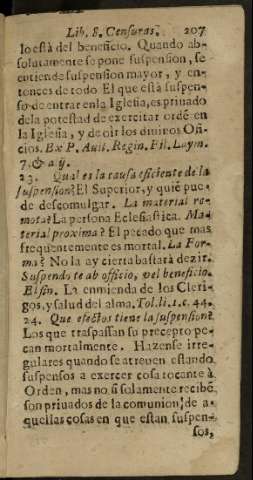 Lib. 8. Censuras. 207
lo està del beneficio. Quando ab-
solutamente se pone suspension, se
entiende suspension mayor, y en-
tonces de todo El que està suspen-
so de entrar en la Iglesia, es priuado
de la potestad de exercitar ordẽ en
la Iglesia, y de oir los diuinos Ofi-
cios. Ex P. Auil. Regin. Fil. Laym.
7. & a ij.
23. Qual es la causa eficiente de la
suspension? El Superior, y quiẽ pue-
de descomulgar. La material re-
mota? La persona Eclesiastica. Ma-
terial proxima? El pecado que mas
frequentemente es mortal. La For-
ma? No la ay cierta bastarà dezir.
Suspendo te ab officio, vel beneficio.
El fin. La enmienda de los Cleri-
gos, y salud del alma. Tol. li. 1. c. 44.
24. Que efectos tiene la suspension?
Los que traspassan su precepto pe-
can mortalmente. Hazense irre-
gulares quando se atreuen estando
suspensos a exercer cosa tocante à
Orden, mas no si solamente recibẽ
son priuados de la comunion, de a-
quellas cosas en que estan suspen-
sos,